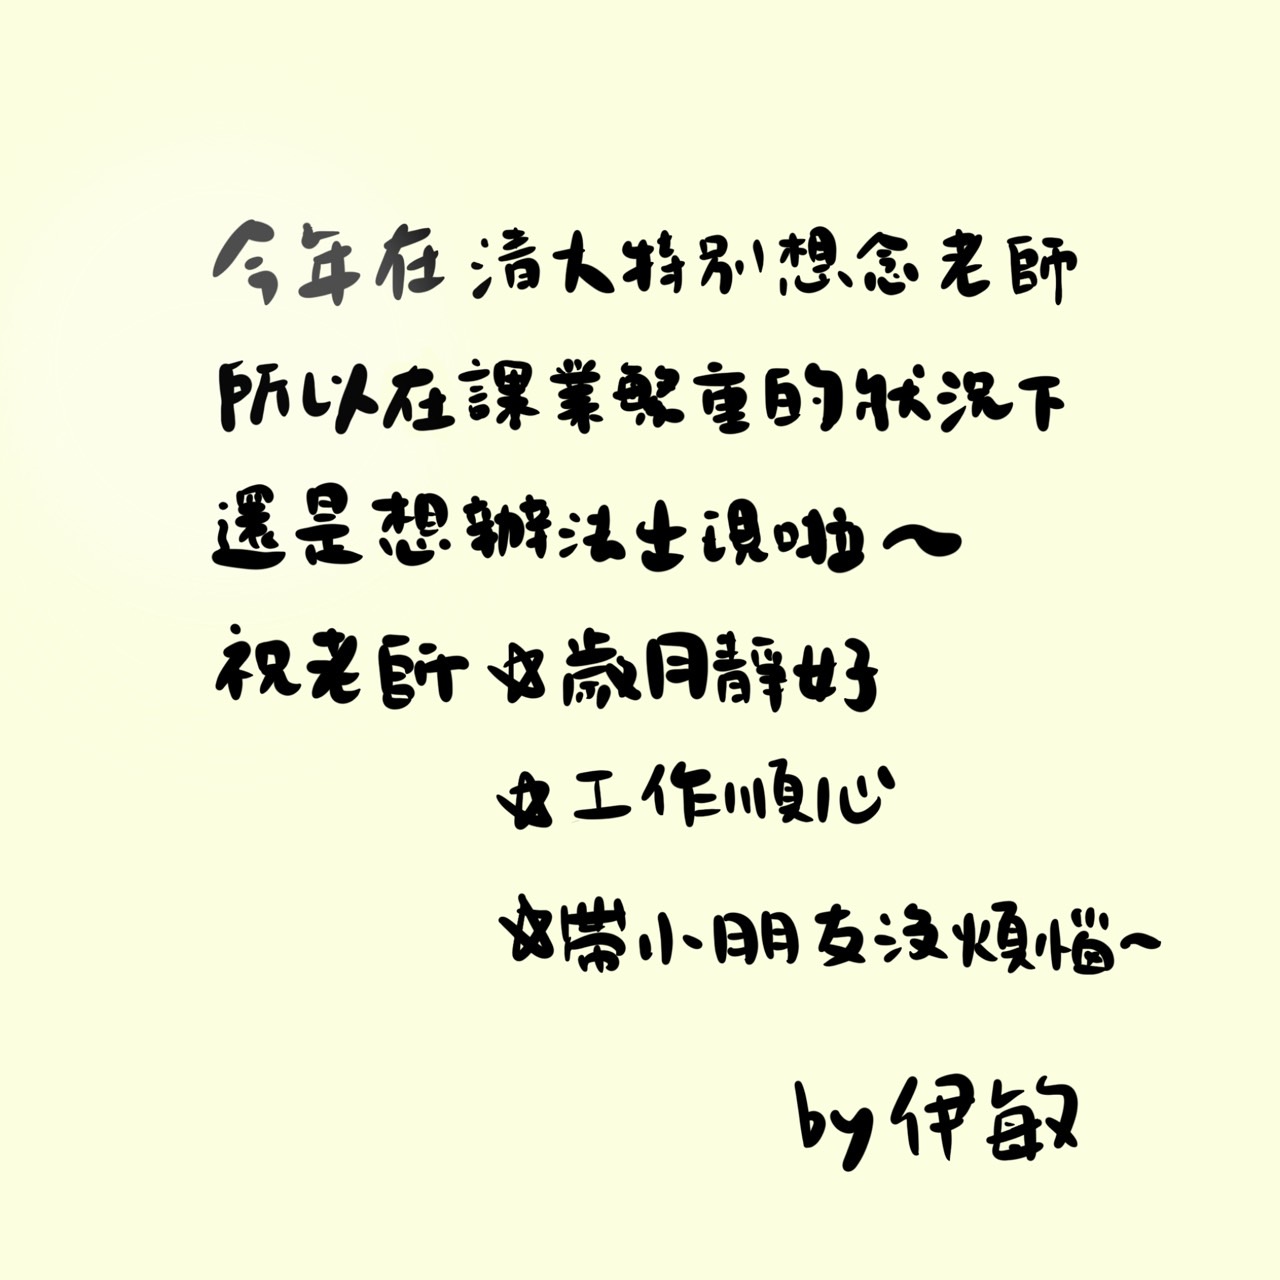 今年在清大特別想念老師
所以在課業繁重的狀況下
還是想辦法出現啦～
祝老師☆歲月靜好
☆工作順心
☆帶小朋友沒煩惱～
by伊敏